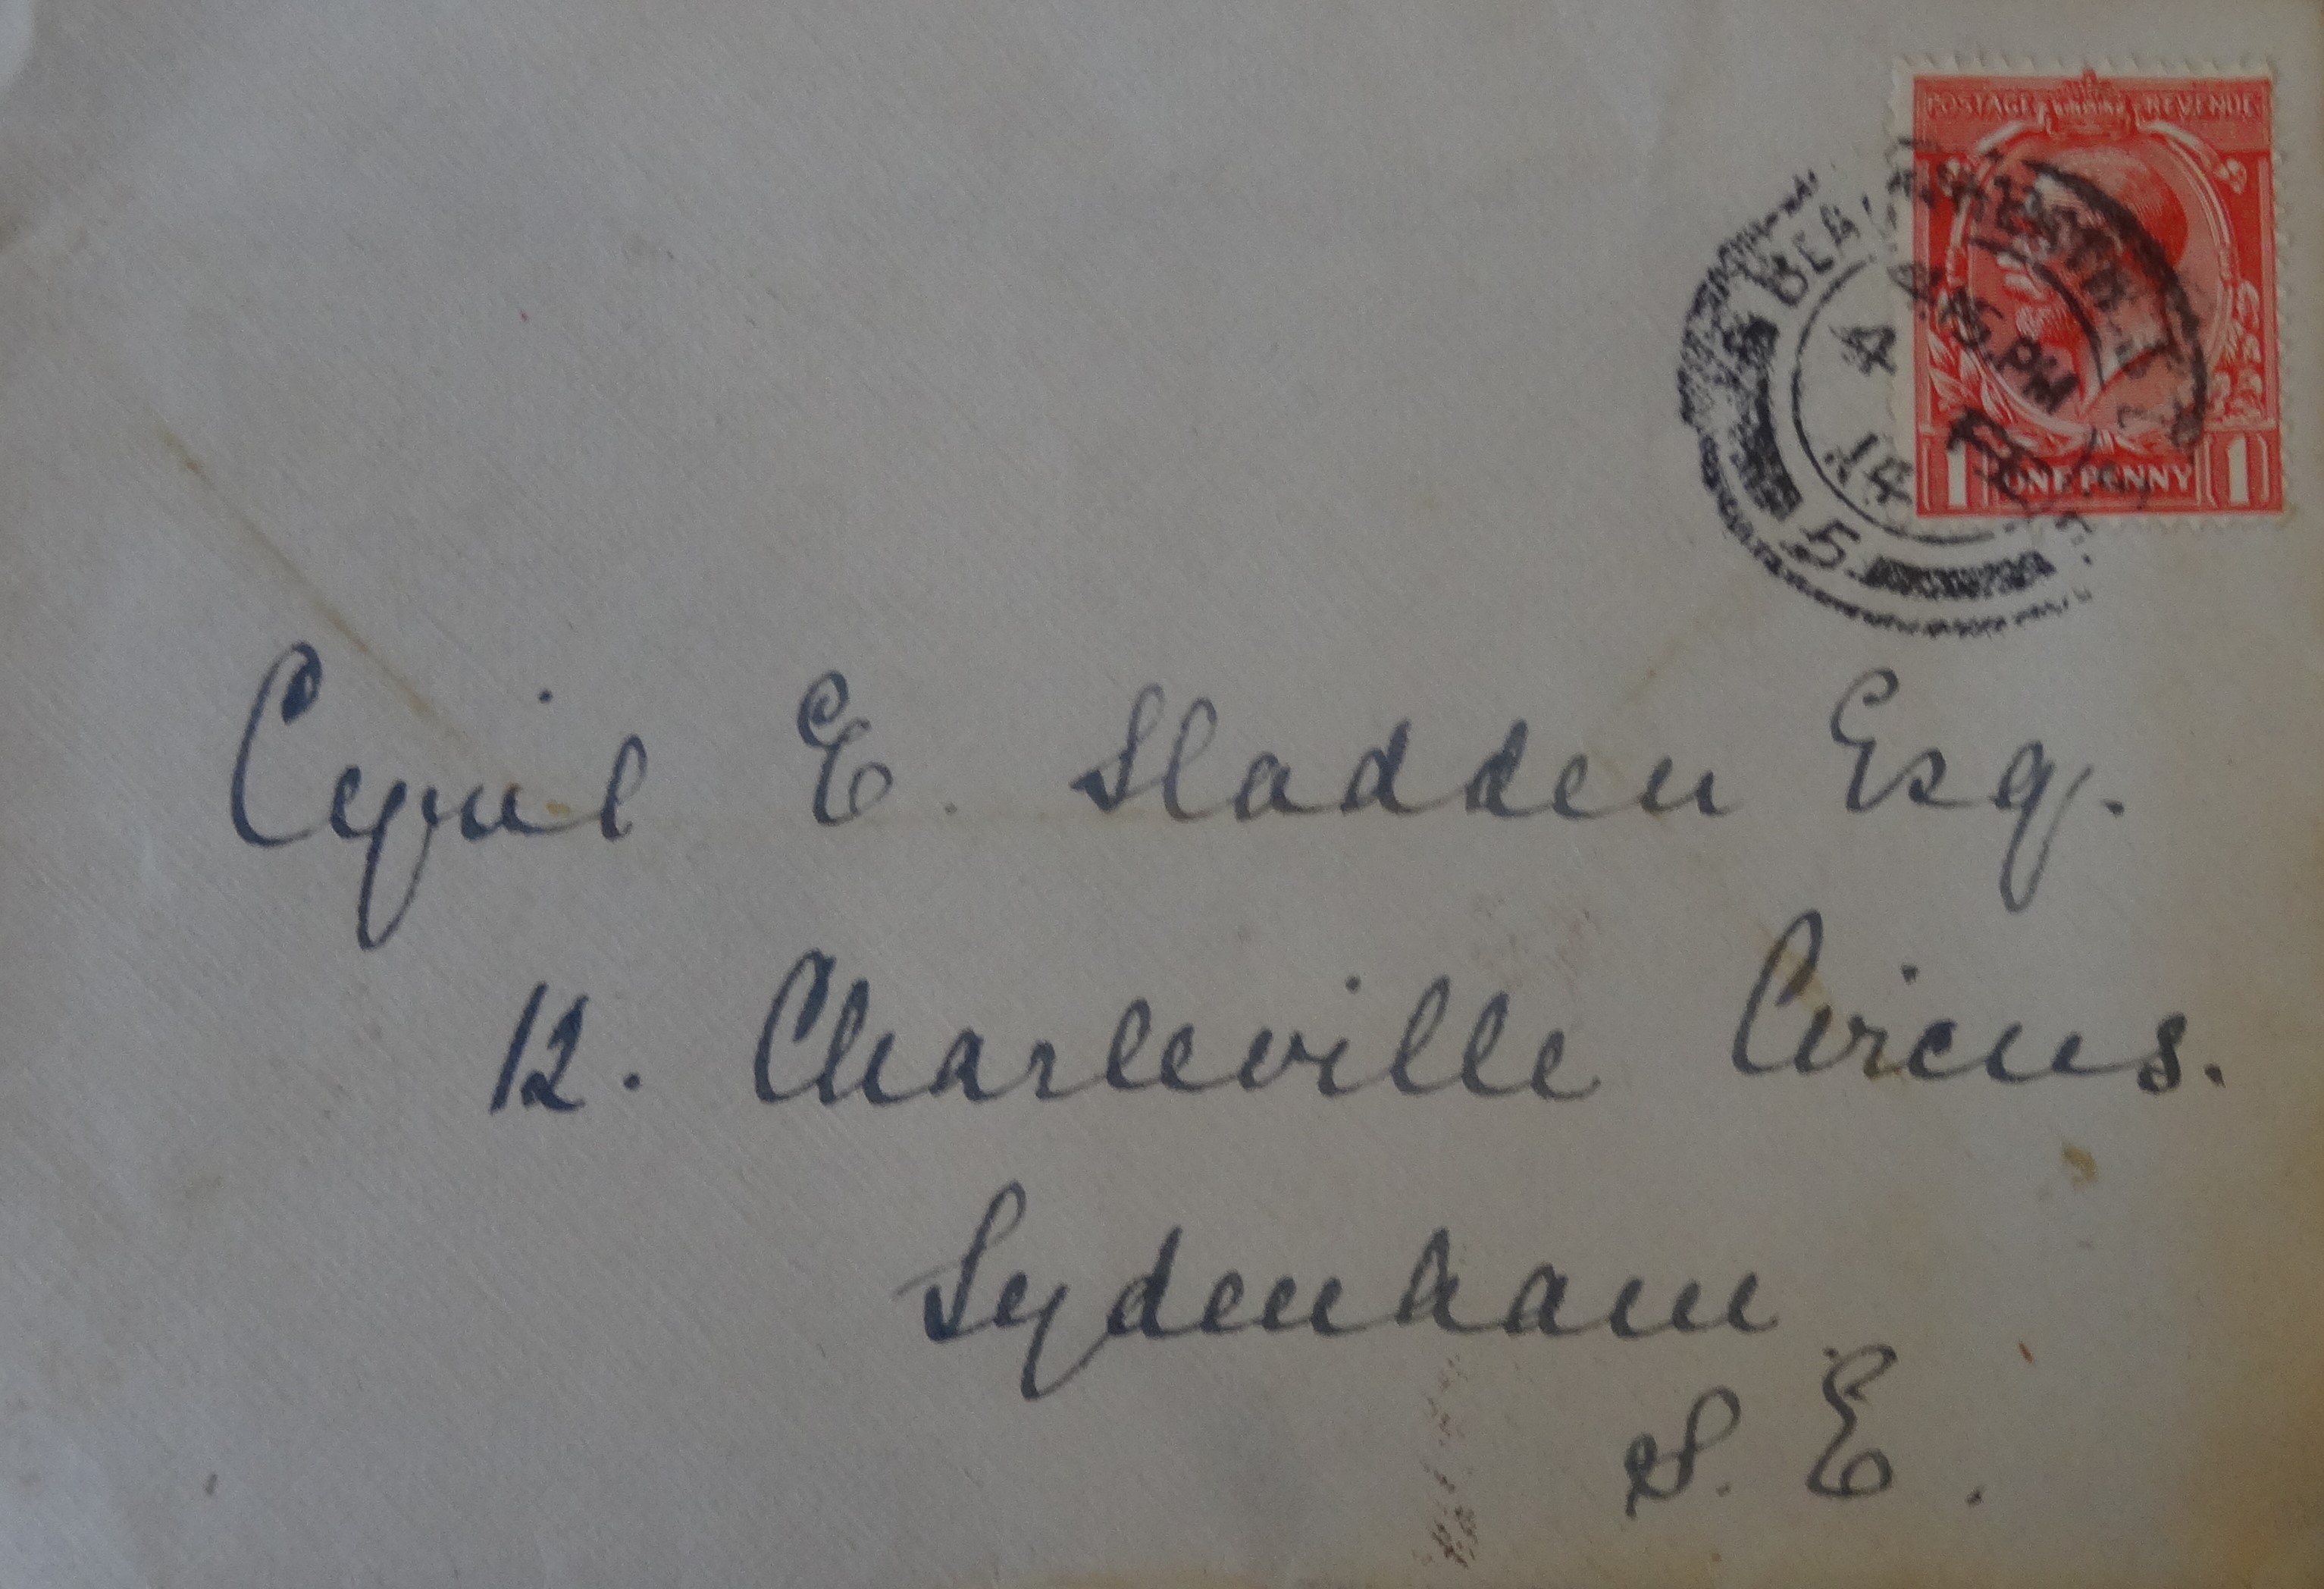 POSTAGE REVENUE
4.15.PM
4 FE
14
5
1 ONE PENNY 1
Cyril E. Sladden Esq.
12. Charleville Circus.
Sydenham
S. E.